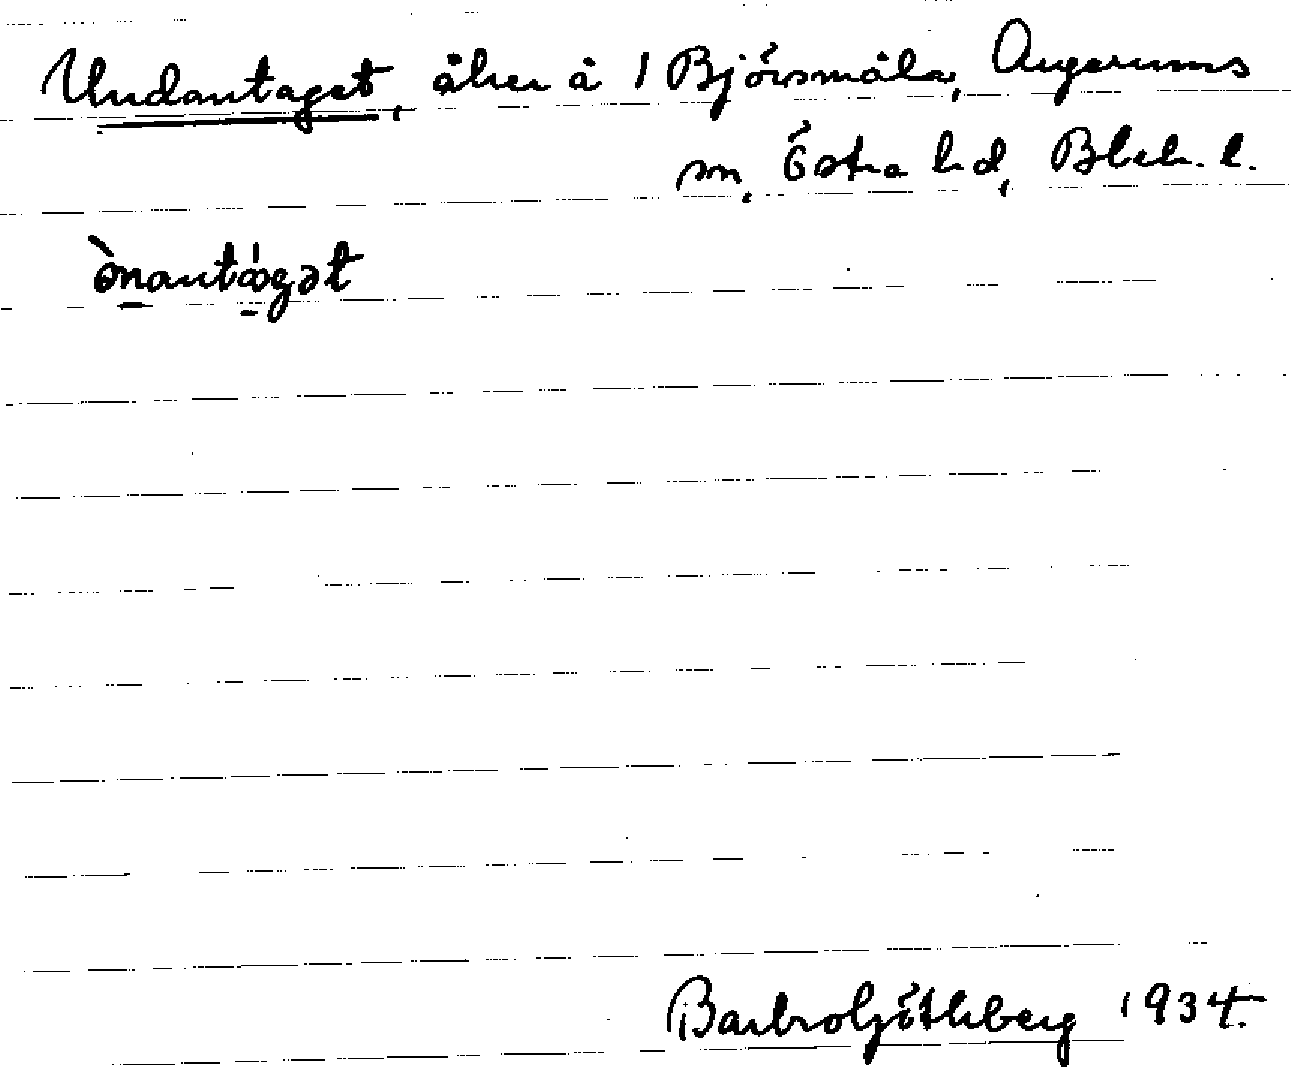 Undantaget, åker å 1 Björsmåla, Augerums
sn, Östra hd, Blek. l.
ònantágət
Barbro Göthberg 1934.